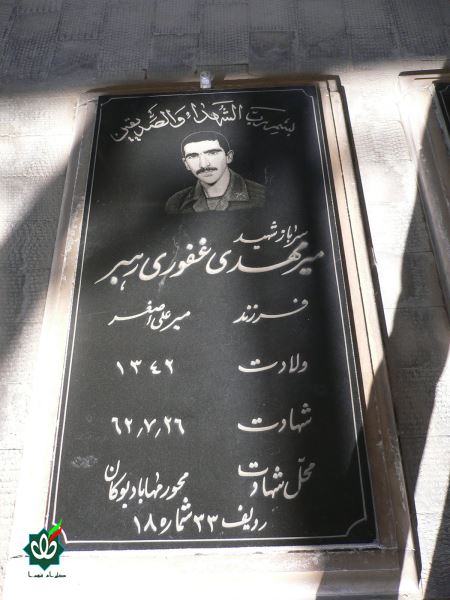 بسم رب الشهداء والصدیقین
سرباز شهید
میرمهدی غفوری رهبر
فرزند میرعلی اصغر
ولادت ۱۳۴۲
شهادت ۶۲٫۷٫۲۶
محل شهادت محور مهاباد بوکان
ردیف ۳۳ شماره ۱۸